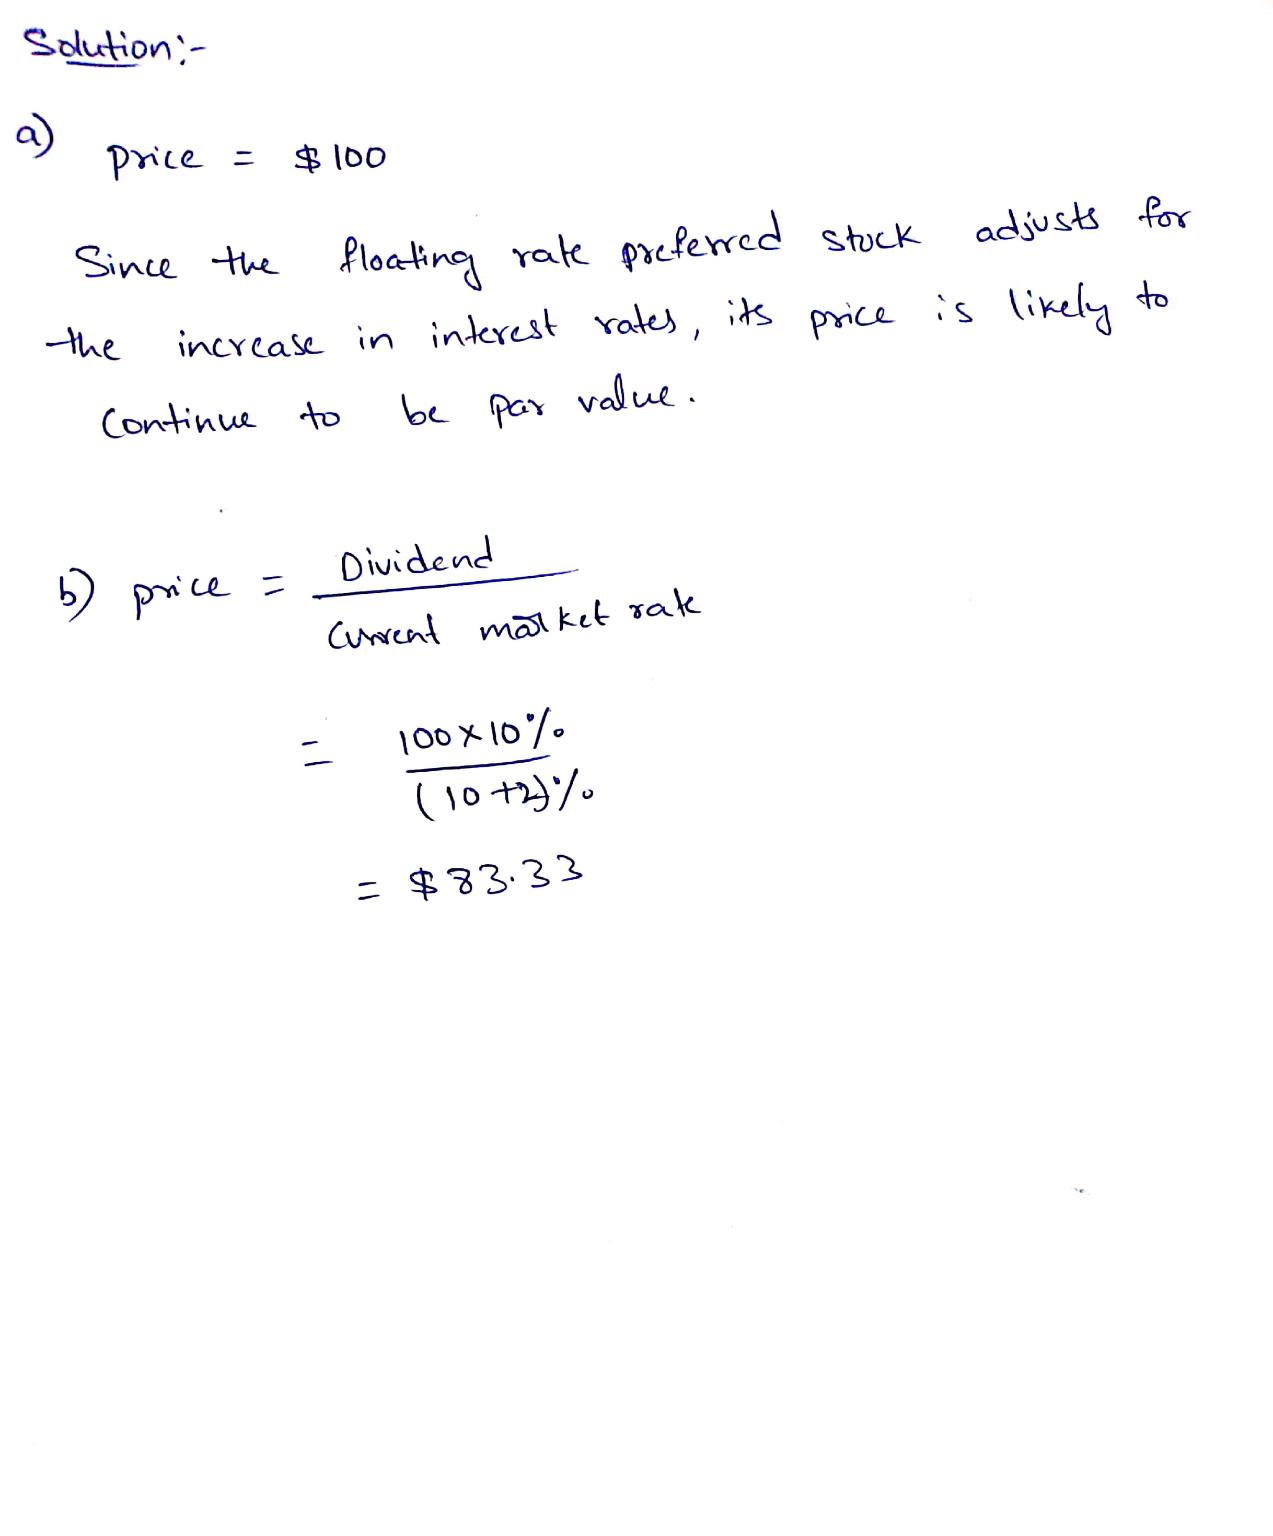 Solution:-
a)
price = $100
Since the floating rate preferred stock adjusts for
the increase in interest rates, its price is likely to
Continue to be par value.
b) price = Dividend
Current market rate
= 100 x 10%
(10+2)%
= $83.33